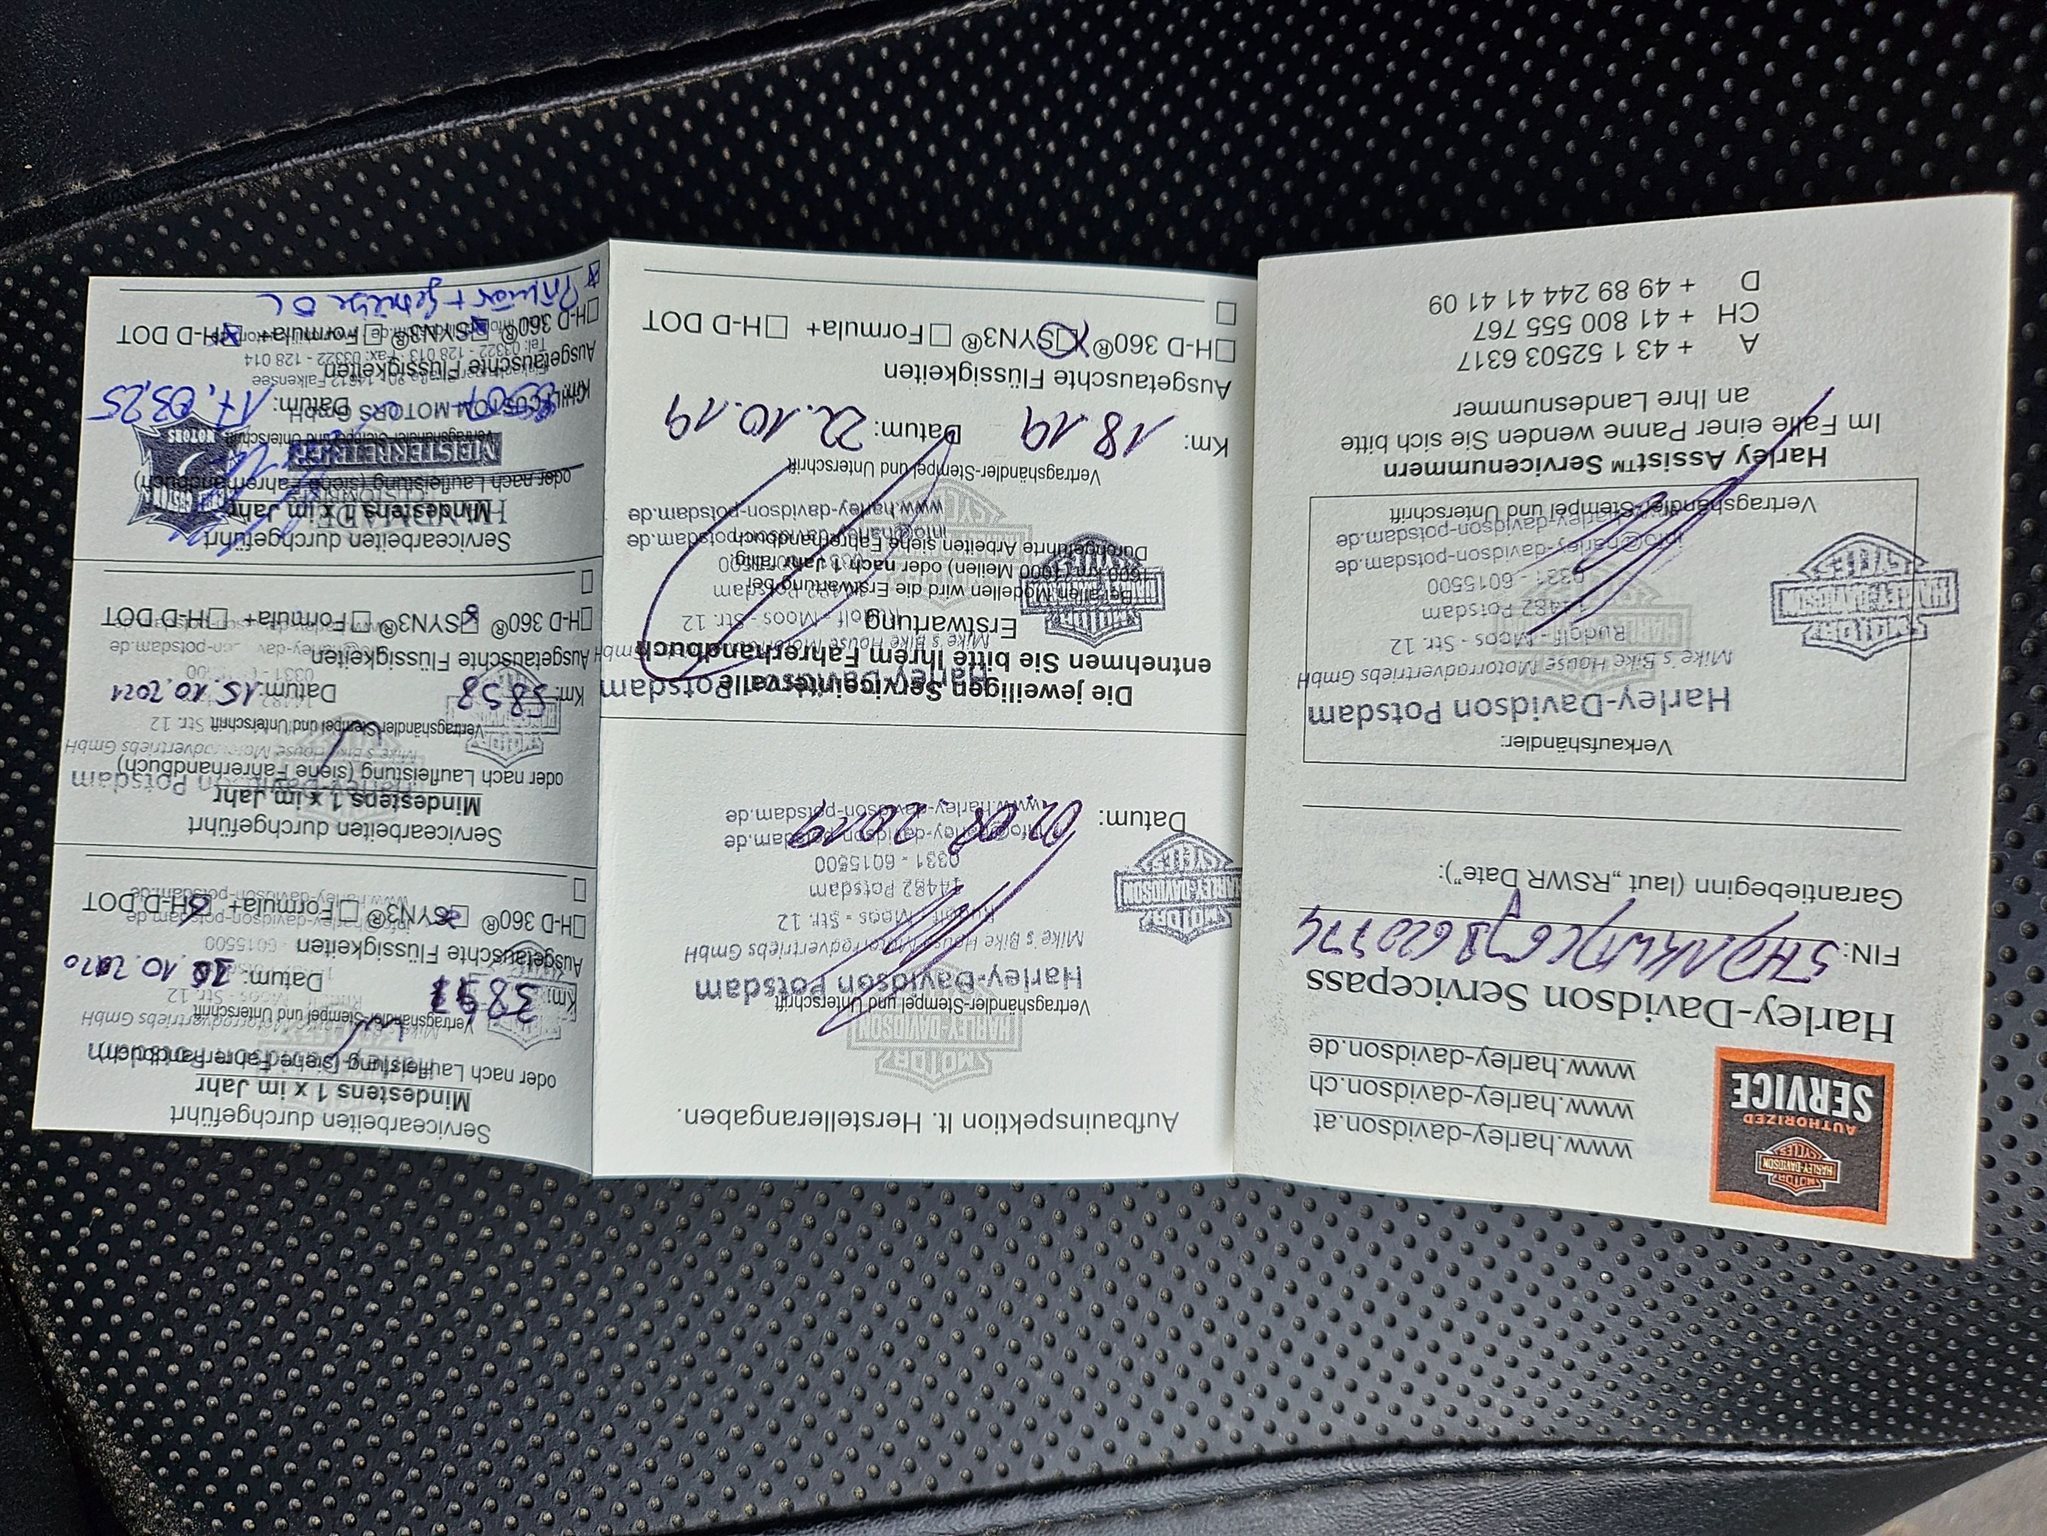 HARLEY-DAVIDSON
AUTHORIZED
SERVICE
www.harley-davidson.at
www.harley-davidson.ch
www.harley-davidson.de
Harley-Davidson Servicepass
FIN:
Garantiebeginn (laut „RSWR Date“):
Verkaufshändler:
Harley-Davidson Potsdam
Mike's Bike House Motorradvertriebs GmbH
Rudolf - Moos - Str. 12
14482 Potsdam
0331 - 6015500
info@harley-davidson-potsdam.de
www.harley-davidson-potsdam.de
MOTOR
HARLEY-DAVIDSON
CYCLES
Vertragshändler-Stempel und Unterschrift
Harley Assist™ Servicenummern
Im Falle einer Panne wenden Sie sich bitte
an Ihre Landesnummer
A + 43 1 52503 6317
CH + 41 800 555 767
D + 49 89 244 41 41 09
Aufbauinspektion lt. Herstellerangaben.
MOTOR
HARLEY-DAVIDSON
Vertragshändler-Stempel und Unterschrift
Harley-Davidson Potsdam
Mike's Bike House Motorradvertriebs GmbH
Rudolf - Moos - Str. 12
14482 Potsdam
0331 - 6015500
info@harley-davidson-potsdam.de
www.harley-davidson-potsdam.de
MOTOR
HARLEY-DAVIDSON
CYCLES
Datum: 02.08.2019
Die jeweiligen Serviceintervalle
entnehmen Sie bitte Ihrem Fahrerhandbuch
Harley-Davidson Potsdam
Mike's Bike House Motorradvertriebs GmbH
Erstwartung
Rudolf - Moos - Str. 12
Bei allen Modellen wird die Erstwartung bei
1600 km (1000 Meilen) oder nach 1 Jahr fällig
Durchgeführte Arbeiten siehe Fahrerhandbuch
info@harley-davidson-potsdam.de
www.harley-davidson-potsdam.de
MOTOR
HARLEY-DAVIDSON
CYCLES
Vertragshändler-Stempel und Unterschrift
Km: 1819 Datum: 22.10.19
Ausgetauschte Flüssigkeiten
H-D 360® SYN3® Formula+ H-D DOT
Servicearbeiten durchgeführt
Mindestens 1 x im Jahr
oder nach Laufleistung (siehe Fahrerhandbuch)
Mike's Bike House Motorradvertriebs GmbH
Vertragshändler-Stempel und Unterschrift
Km: Datum: 10.2020
Ausgetauschte Flüssigkeiten
H-D 360® SYN3® Formula+ H-D DOT
Servicearbeiten durchgeführt
Mindestens 1 x im Jahr
oder nach Laufleistung (siehe Fahrerhandbuch)
Harley-Davidson Potsdam
Mike's Bike House Motorradvertriebs GmbH
Vertragshändler-Stempel und Unterschrift
Km: 5858 Datum: 15.10.2021
Ausgetauschte Flüssigkeiten
H-D 360® SYN3® Formula+ H-D DOT
Servicearbeiten durchgeführt
HANDMADE
Mindestens 1 x im Jahr
oder nach Laufleistung (siehe Fahrerhandbuch)
MEISTERBETRIEB
Vertragshändler-Stempel und Unterschrift
CUSTOM MOTORS GmbH
MOTORS
Km: Datum: 17.03.25
14612 Falkensee
Ausgetauschte Flüssigkeiten
Tel: 03322 - 128 013 · Fax: 03322 - 128 014
H-D 360® SYN3® Formula+ H-D DOT
Primär + Getriebe ÖL